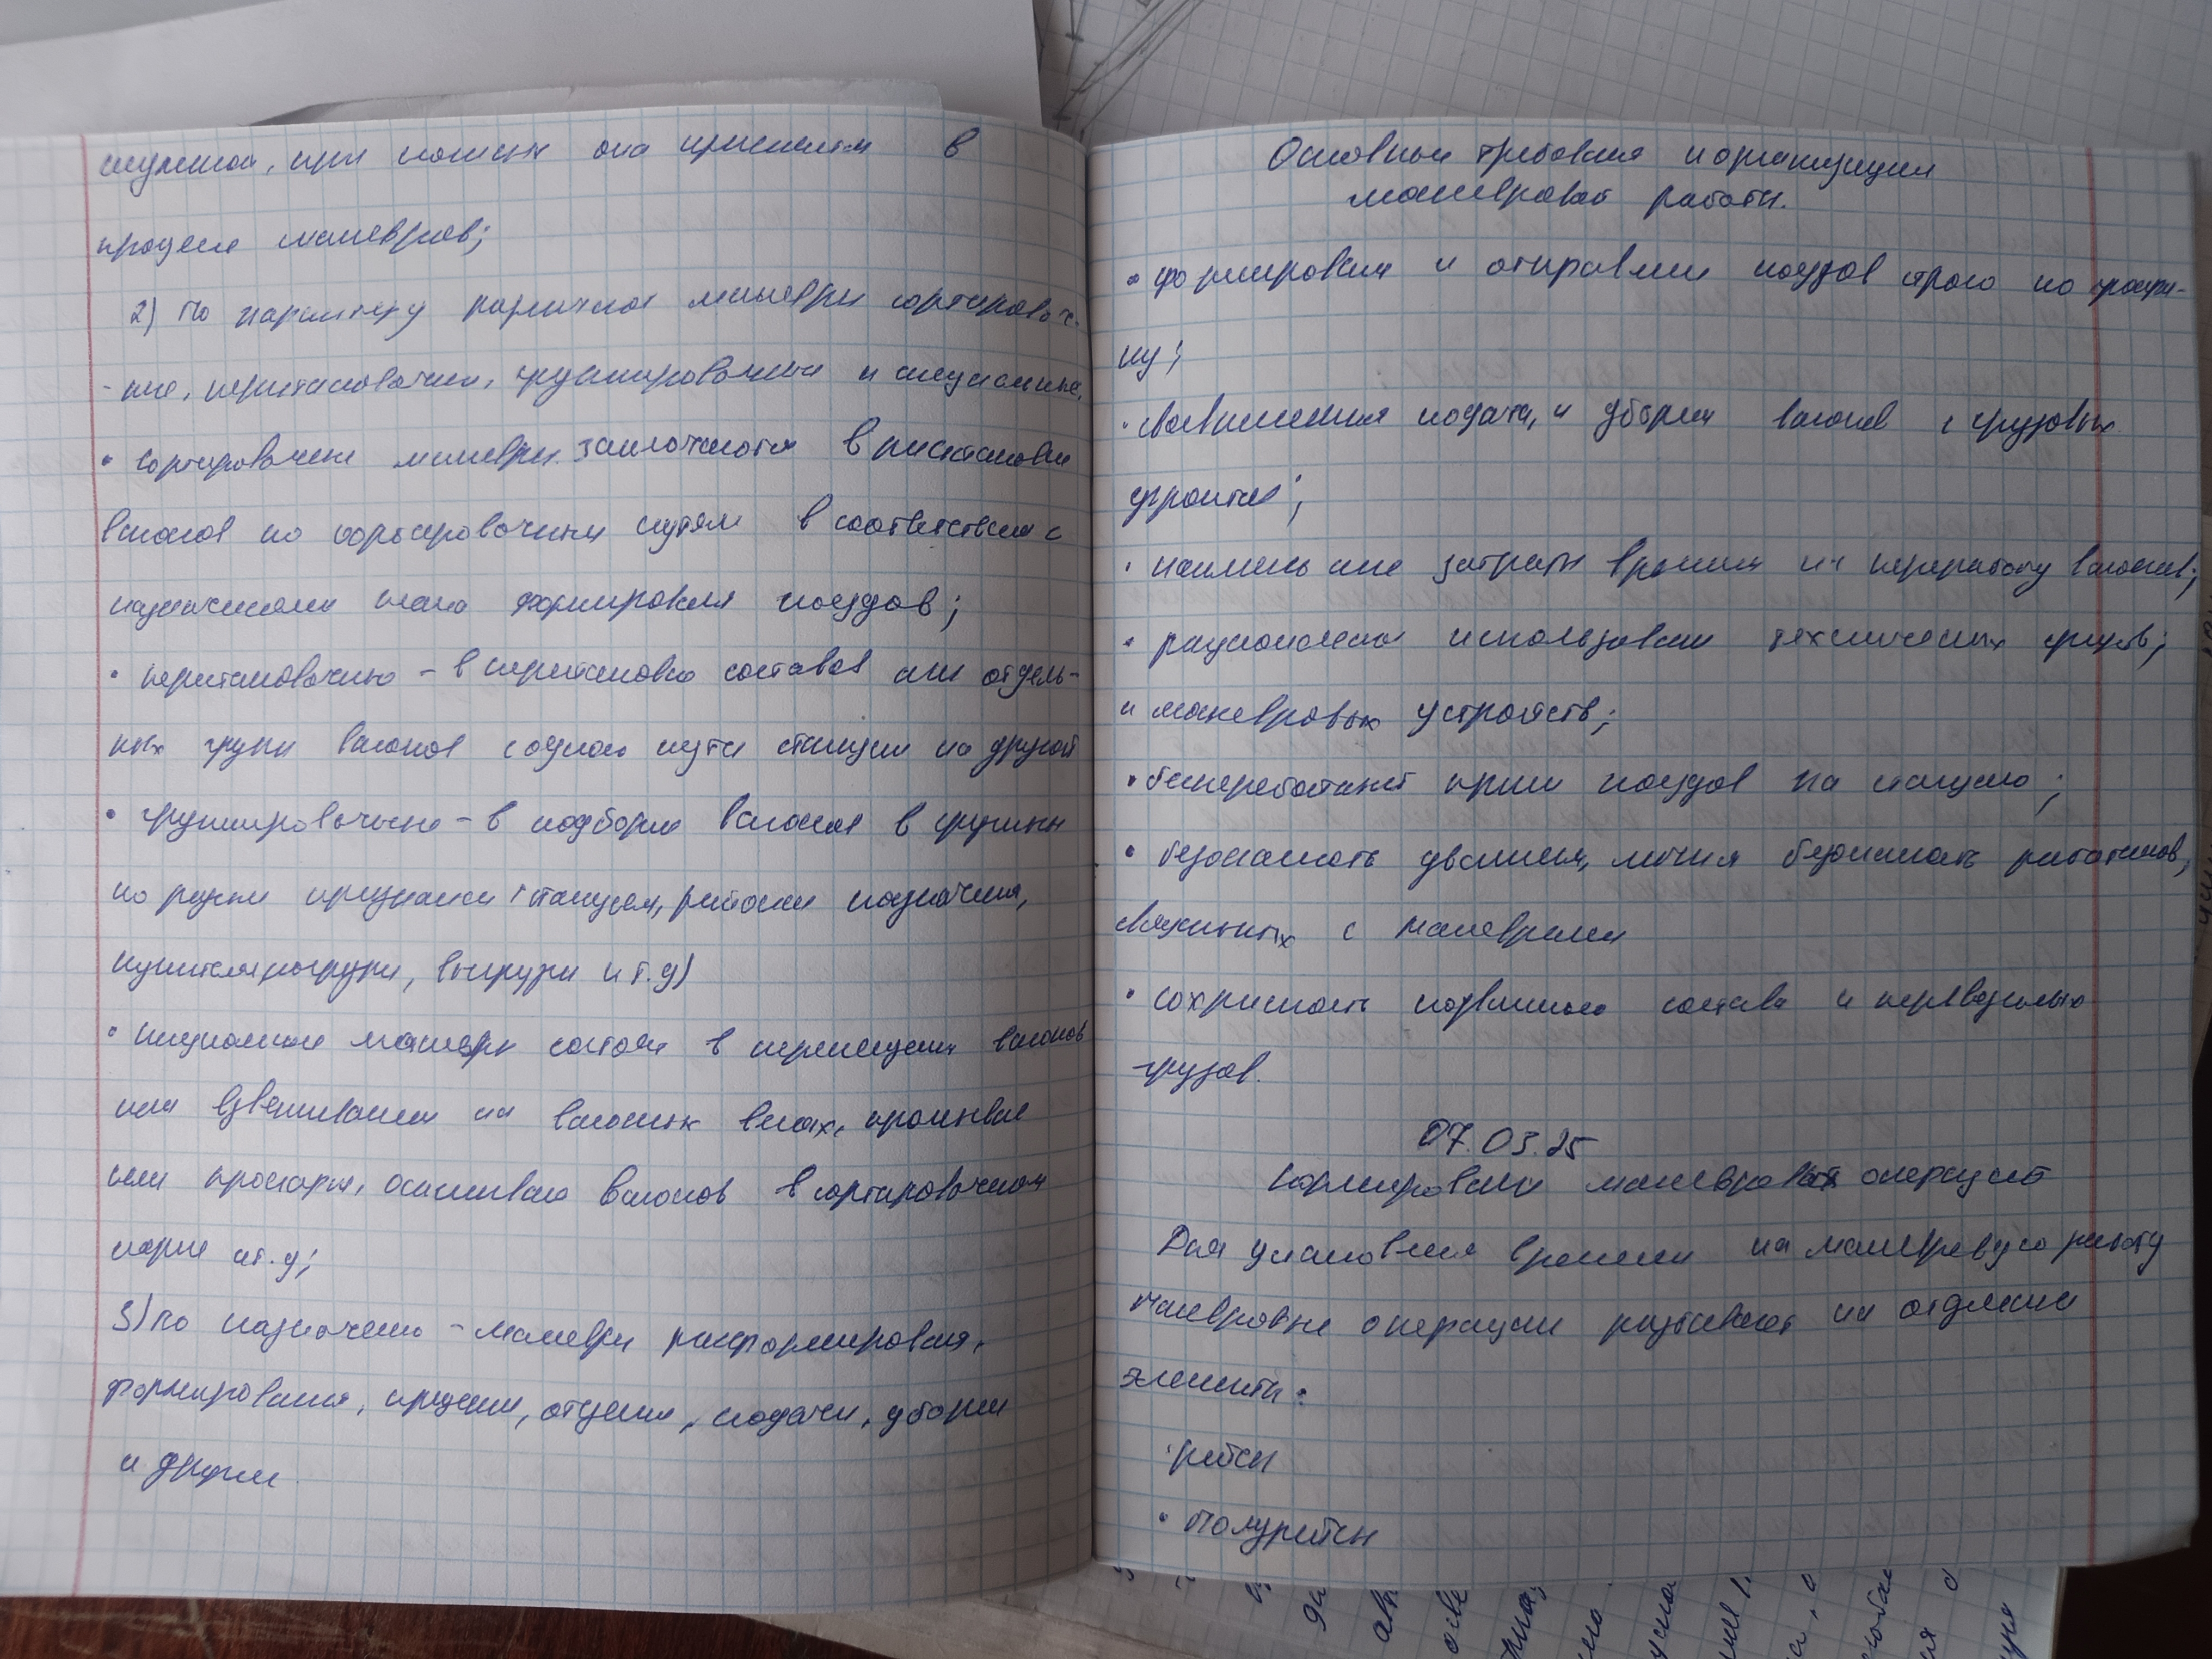 процессе маневров;
2) По характеру различают маневры сортировоч-
-ные, перестановочные, группировочные и специальные.
• сортировочные маневры заключаются в расстановке
вагонов по сортировочным путям в соответствии с
назначениями плана формирования поездов;
• перестановочные - в перестановке составов или отдель-
ных групп вагонов с одного пути станции на другой
• группировочные - в подборке вагонов в группы
по разным признакам (станциям, районам назначения,
погрузки, выгрузки и т.д)
• специальные маневры состоят в перемещении вагонов
или взвешивании на вагонных весах, промывке
или пропарки, осаживание вагонов в сортировочном
парке ит.д;
3) по назначению - маневры расформирования,
формирования, прицепки, отцепки, подачи, уборки
и другие.
Основные требования к организации
маневровой работы.
• формирования и отправление поездов строго по графи-
ку;
• своевременная подача, и уборка вагонов с грузовых
фронтов;
• наименьшие затраты времени на переработку вагонов;
• рациональное использование технических средств;
и маневровых устройств;
• бесперебойный прием поездов на станцию;
• безопасность движения, личная безопасность работников,
связанных с маневрами
• сохранность подвижного состава и перевозимых
грузов.
07.03.25
Нормирование маневровых операций
Для установления времени на маневровую работу
маневровые операции разбивают на отдельные
элементы:
• рейсы
• полурейсы